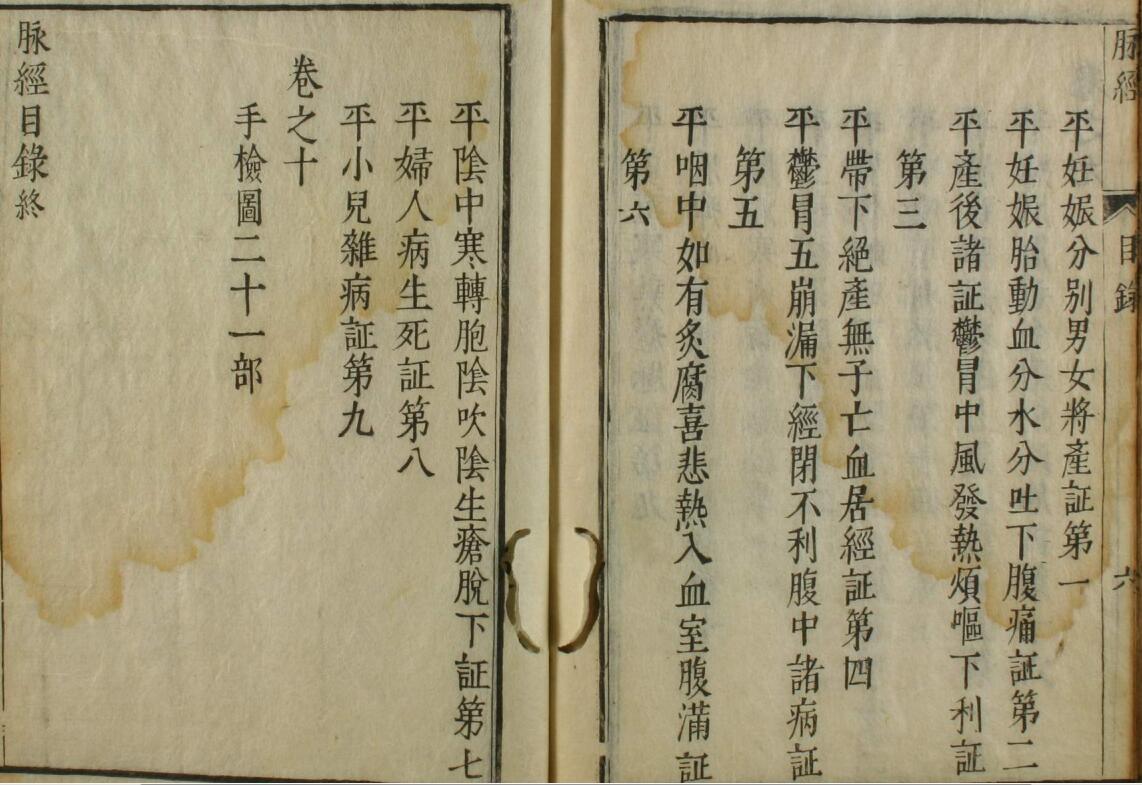 脉經
目錄
六
平妊娠分别男女將產証第一
平妊娠胎動血分水分吐下腹痛証第二
平產後諸証鬱冒中風發熱煩嘔下利証
第三
平帶下絕產無子亡血居經証第四
平鬱冒五崩漏下經閉不利腹中諸病証
第五
平咽中如有炙腐喜悲熱入血室腹滿証
第六
平陰中寒轉胞陰吹陰生瘡脫下証第七
平婦人病生死証第八
平小兒雜病証第九
卷之十
手檢圖二十一部
脉經目錄終